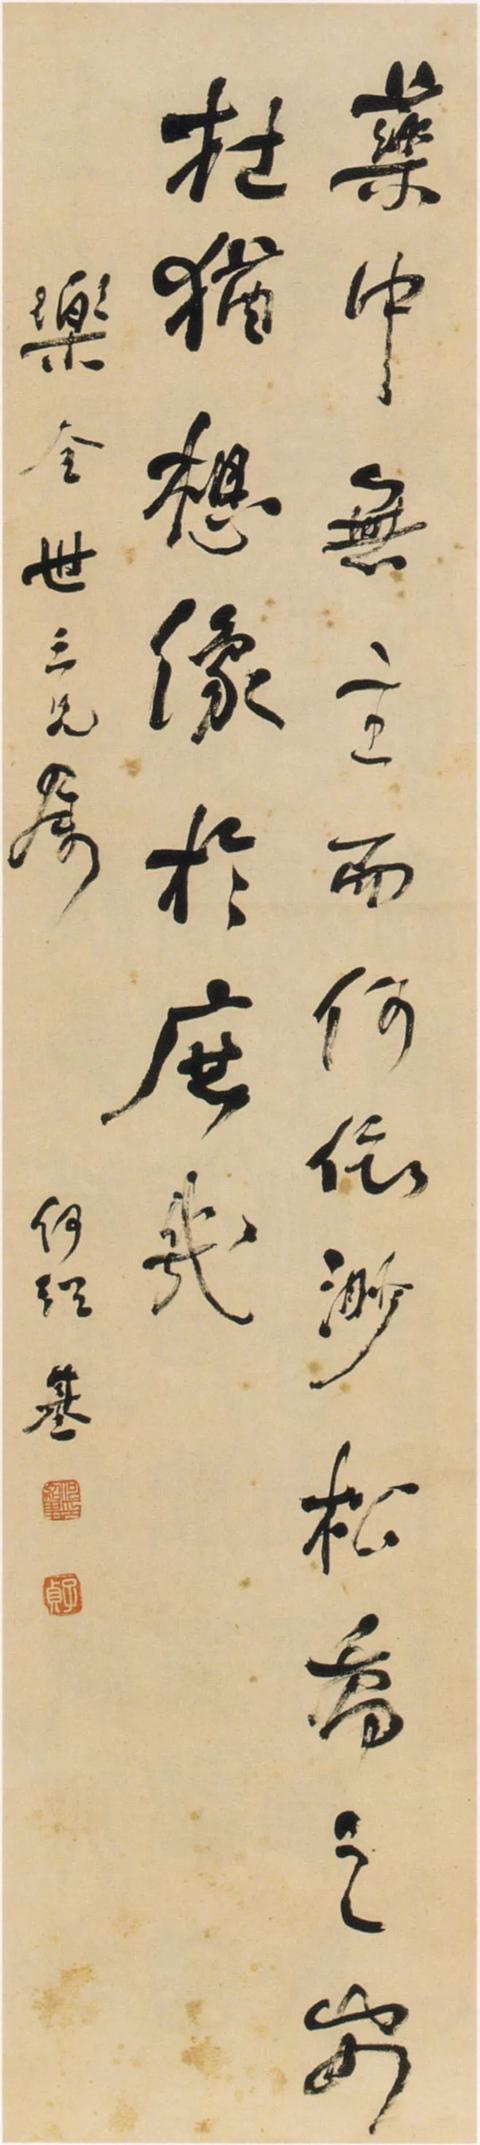 藥中無主而何依渺松喬之安
在猶想像於庶幾
樂全世三兄屬 何紹基
子貞